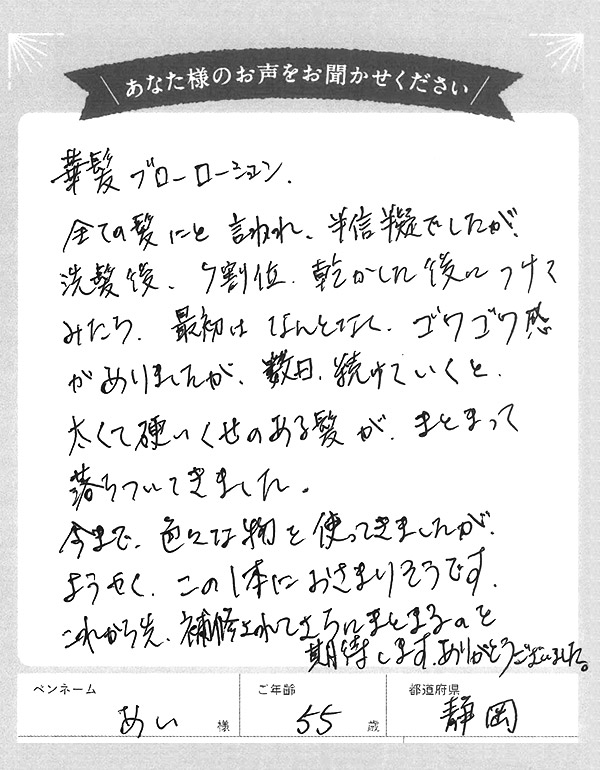 あなた様のお声をお聞かせください
華髪ブローローション.
全ての髪にと言われ、半信半疑でしたが、
洗髪後、7割位、乾かした後につけて
みたら、最初はなんとなく、ゴワゴワ感
がありましたが、数日、続けていくと、
太くて硬いくせのある髪が、まとまって
落ちついてきました。
今まで、色々な物を使ってきましたが、
ようやく、この1本におさまりそうです。
これから先、補修されてさらにまとまるのを
期待します。ありがとうございました。
ペンネーム ご年齢 都道府県
めい 様 55 歳 静岡